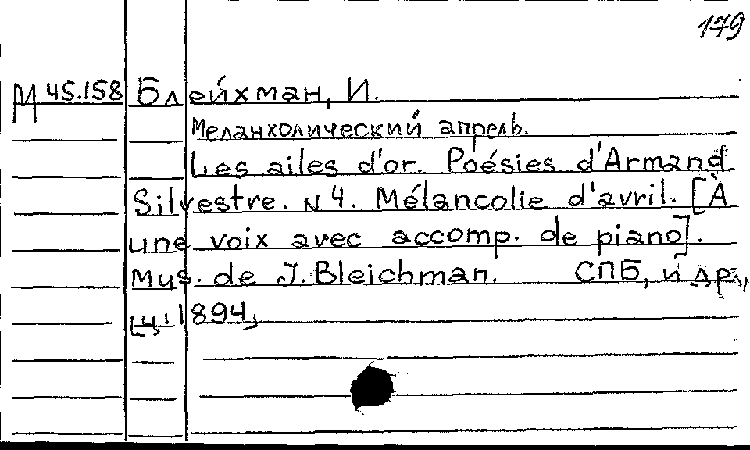 179
М 45.158 Блейхман, И.
Меланхолический апрель.
Les ailes d'or. Poésies d'Armand
Silvestre. N 4. Mélancolie d'avril. [À
une voix avec accomp. de piano].
Mus. de J. Bleichman. СПБ, и др.,
ц. 1894,